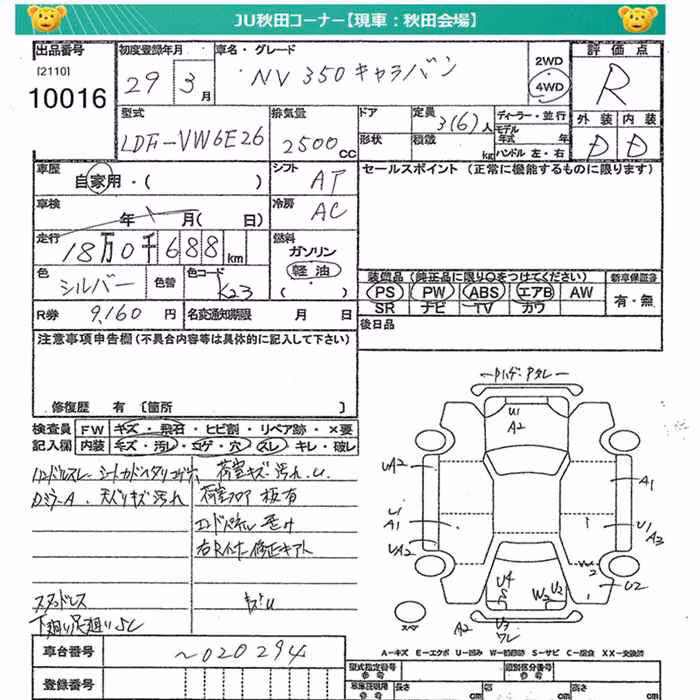 JU秋田コーナー【現車：秋田会場】
出品番号
[2110]
10016
初度登録年月
29年 3月
車名・グレード
NV350キャラバン
2WD
4WD
評価点
R
外装 内装
D D
型式
LDF-VW6E26
排気量
2500 CC
ドア
形状
定員
3(6)人
積載
kg
ディーラー・並行
モデル
年式 年
ハンドル 左・右
車歴
自家用・( )
シフト
AT
車検
年 月( 日)
冷房
AC
走行
18万0千688km
燃料
ガソリン
軽油
( )
色
シルバー
色替
色コード
K23
R券 9,160円
名変通知期限 月 日
セールスポイント（正常に機能するものに限ります）
装備品（純正品に限り○をつけてください）
新車保証書
PS PW ABS エアB AW
SR ナビ TV カワ
有・無
後日品
注意事項申告欄（不具合内容等は具体的に記入して下さい）
修復歴 有 〔箇所 〕
検査員
記入欄
FW キズ・飛石・ヒビ割・リペア跡・×要
内装 キズ・汚レ・コゲ・穴・スレ・キレ・破レ
荷室キズ汚れ.U
Dミラー A. 天バリキズ汚れ
荷室フロア板有
エンドパネル
スタッドレス
下廻り足廻りSC
U1
A2
UA2
U1
A1
UA2
A1
U1
A3
W2
U2
U4
S
W2 U2
A2
U3
ワレ
スペ
A-キズ E-エクボ U-凹み W-補修跡 S-サビ C-腐食 XX-交換済
車台番号
~020294
登録番号
型式指定番号
参考
類別区分番号
参考
長さ cm
幅 cm
高さ cm